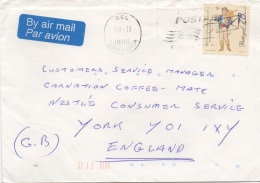 By air mail
Par avion
POSTAL
78
Portugal
CUSTOMERS, SERVICE, MANAGER
CARNATION COFFEE-MATE
NESTLÉ CONSUMER SERVICE
YORK YO1 1XY
(G.B) ENGLAND